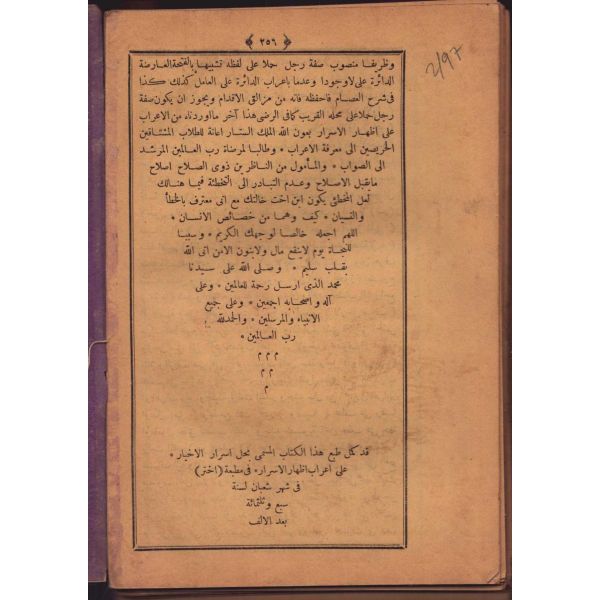 ﴿ ٣٥٦ ﴾
2/97
وظريفا منصوب صفة رجل حملا على لفظه تشبيها بالفتحة العارضة
الدائرة على لاوجودا وعدما باعراب الدائرة على العامل كذلك كذا
فى شرح العصام فاحفظه فانه من مزالق الاقدام ويجوز ان يكون صفة
رجل حملا على محله القريب كمافى الرضى هذا آخر ما اوردناه من الاعراب
على اظهار الاسرار بعون الله الملك الستار اعانة للطلاب المشتاقين
الحريصين الى معرفة الاعراب * وطالبا لمرضاة رب العالمين المرشد
الى الصواب * والمأمول من الناظرين ذوى الصلاح اصلاح
مايقبل الاصلاح وعدم التبادر الى التخطئة فيما هنالك
لعل المخطئ يكون ابن اخت خالتك مع انى معترف بالخطأ
والنسيان * كيف وهما من خصائص الانسان *
اللهم اجعله خالصا لوجهك الكريم * وسببا
للنجاة يوم لاينفع مال ولابنون الامن اتى الله
بقلب سليم * وصلى الله على سيدنا
محمد الذى ارسل رحمة للعالمين * وعلى
آله واصحابه اجمعين * وعلى جميع
الانبياء والمرسلين * والحمدلله
رب العالمين *
م م م
م م
م
قد كمل طبع هذا الكتاب المسمى بحل اسرار الاخيار *
على اعراب اظهار الاسرار * فى مطبعة (اختر)
فى شهر شعبان لسنة
سبع وثلثمائة
بعد الالف